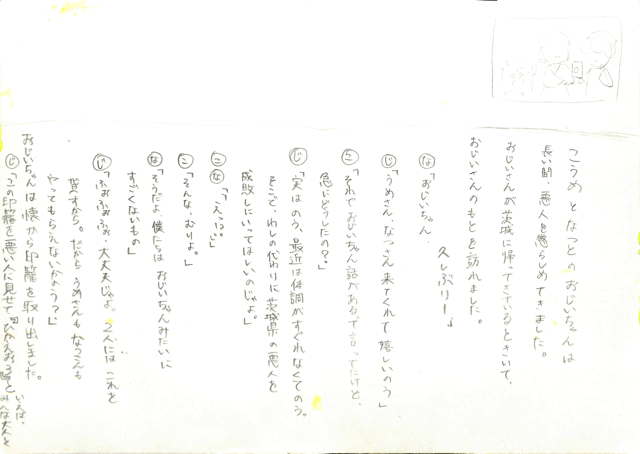 こうめとなつとのおじいちゃんは
長い間、悪人を懲らしめてきました。
おじいさんが茨城に帰ってきているときいて、
おじいさんのもとを訪れました。
な「おじいちゃん、
久しぶりー」
じ「うめさん、なつさん来てくれて嬉しいのう」
こ「それでおじいちゃん話があるって言ってたけど、
急にどうしたの?」
じ「実はのう、最近は体調がすぐれなくてのう。
そこで、わしの代わりに茨城県の悪人を
成敗しにいってほしいのじゃよ。」
こな「えっ…」
こ「そんな、むりよ。」
な「そうだよ、僕たちはおじいちゃんみたいに
すごくないもの」
じ「ふぉふぉふぉ、大丈夫じゃよ。2人にはこれを
貸すから。だからうめさんもなつさんも
やってもらえないかのう?」
おじいちゃんは懐から印籠を取り出しました。
じ「この印籠を悪い人に見せて「ひかえおろう」と
いえば、
みんな大人と